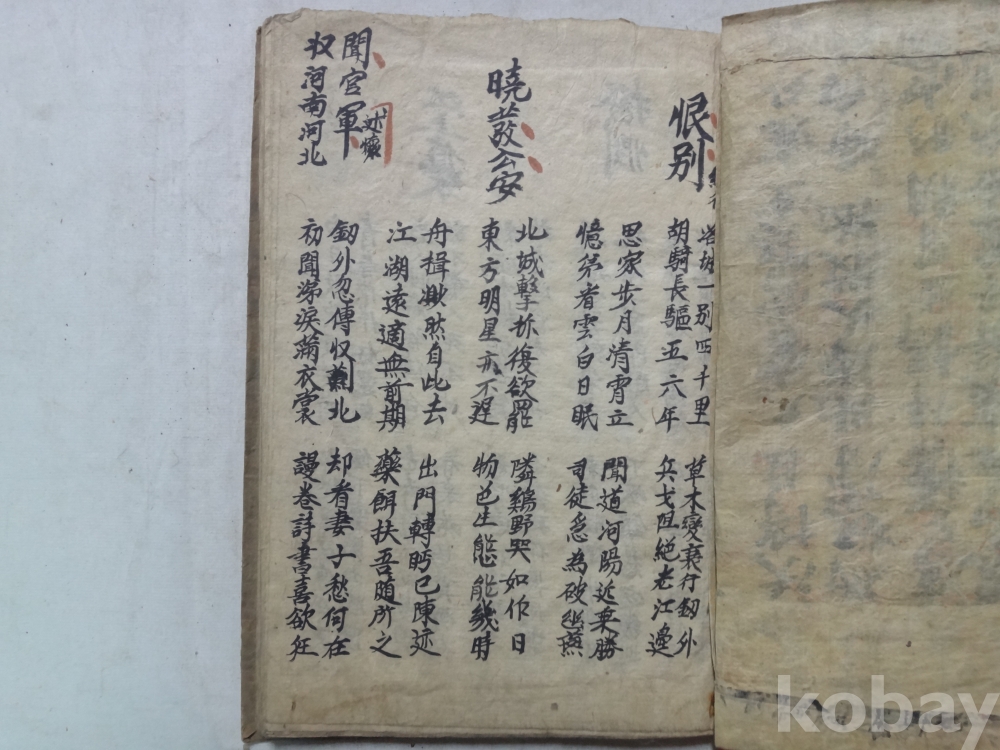 恨别
洛城一别四千里
胡騎長驅五六年
草木變衰行劒外
兵戈阻絶老江邊
思家步月清宵立
憶弟看雲白日眠
聞道河陽近乗勝
司徒急為破幽燕
曉發公安
北城擊柝復欲罷
東方明星亦不遲
隣鷄野哭如作日
物色生態能幾時
舟楫眇然自此去
江湖遠適無前期
出門轉眄已陳迹
藥餌扶吾随所之
聞官軍
収河南河北
述懷
劒外忽傳収薊北
初聞涕淚滿衣裳
却看妻子愁何在
謾卷詩書喜欲狂
kobay